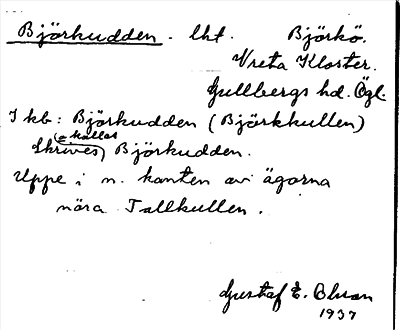 Björkudden. lht. Björkö.
Vreta Kloster.
Gullbergs hd. Ögl.
I kb: Björkudden (Björkkullen)
(o kallas
Skrives) Björkudden.
Uppe i n. kanten av ägorna
nära Tallkullen.
Gustaf E. Olsson
1937